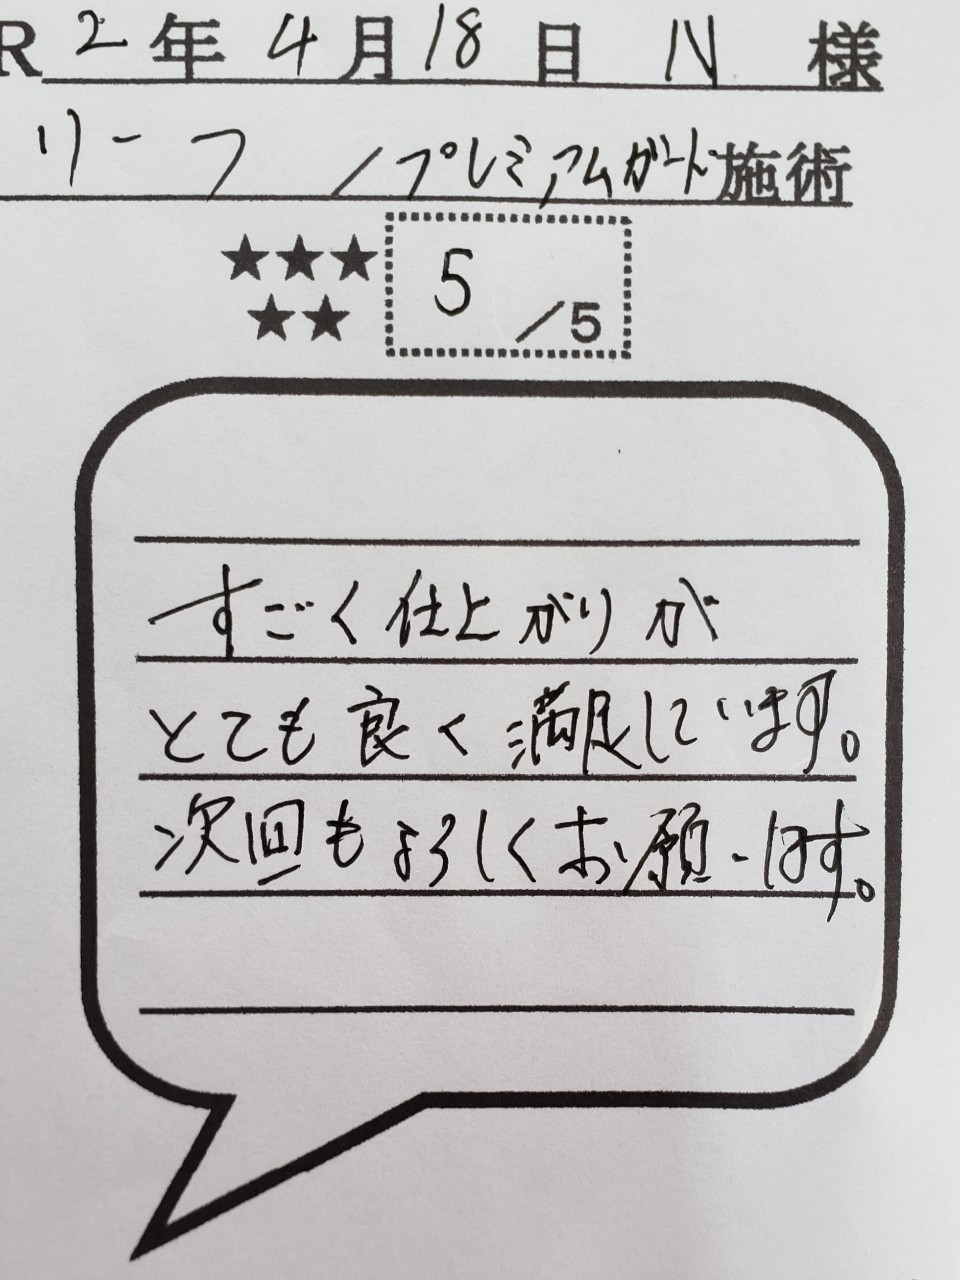 R2年4月18日 N 様
リーフ / プレミアムガード施術
★★★
★★
5/5
すごく仕上がりが
とても良く満足しています。
次回もよろしくお願いします。